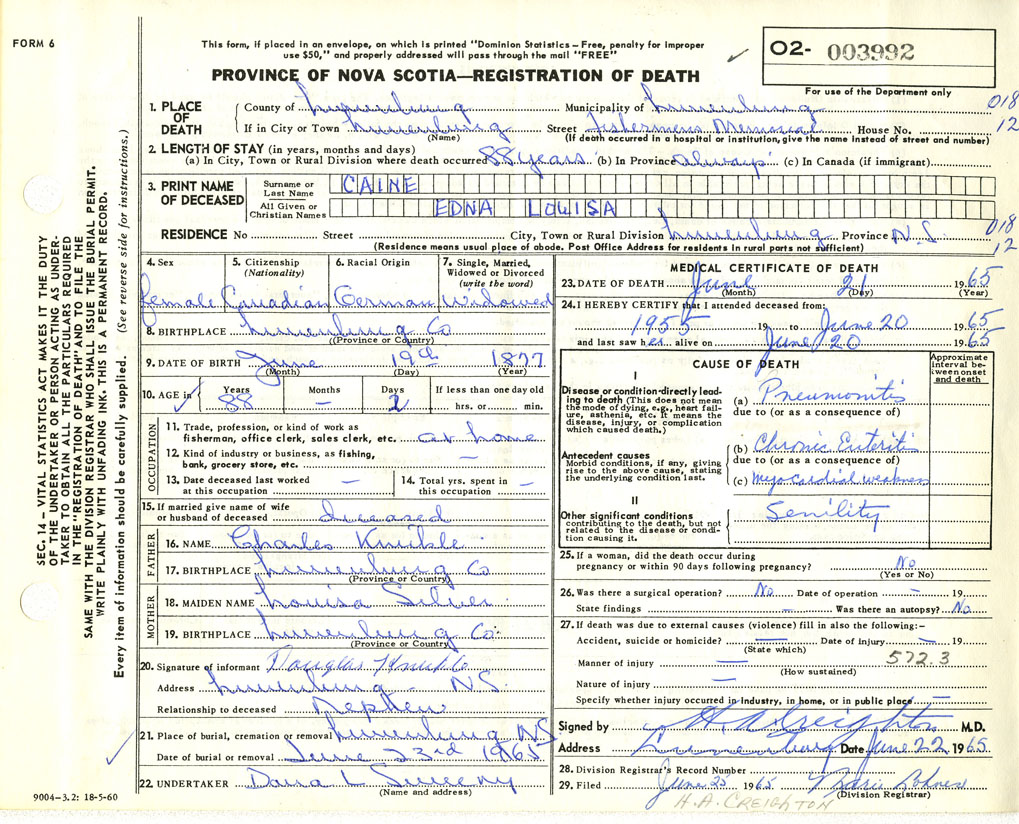 FORM 6
This form, if placed in an envelope, on which is printed "Dominion Statistics – Free, penalty for improper
use $50," and properly addressed will pass through the mail "FREE"
PROVINCE OF NOVA SCOTIA—REGISTRATION OF DEATH
O2- 003992
For use of the Department only
SEC. 14 – VITAL STATISTICS ACT MAKES IT THE DUTY
OF THE UNDERTAKER OR PERSON ACTING AS UNDER-
TAKER TO OBTAIN ALL THE PARTICULARS REQUIRED
IN THE "REGISTRATION OF DEATH" AND TO FILE THE
SAME WITH THE DIVISION REGISTRAR WHO SHALL ISSUE THE BURIAL PERMIT.
WRITE PLAINLY WITH UNFADING INK. THIS IS A PERMANENT RECORD.
Every item of information should be carefully supplied. (See reverse side for instructions.)
1. PLACE OF DEATH
County of Lunenburg Municipality of Lunenburg 018
If in City or Town Lunenburg Street Fishermens Memorial House No. 12
(Name) (If death occurred in a hospital or institution, give the name instead of street and number)
2. LENGTH OF STAY (in years, months and days)
(a) In City, Town or Rural Division where death occurred 88 years (b) In Province always (c) In Canada (if immigrant)
3. PRINT NAME OF DECEASED
Surname or Last Name CAINE
All Given or Christian Names EDNA LOUISA
RESIDENCE No Street City, Town or Rural Division Lunenburg Province N.S. 018
12
(Residence means usual place of abode. Post Office Address for residents in rural parts not sufficient)
4. Sex female
5. Citizenship (Nationality) Canadian
6. Racial Origin German
7. Single, Married, Widowed or Divorced (write the word) Widowed
8. BIRTHPLACE Lunenburg Co
(Province or Country)
9. DATE OF BIRTH June 19th 1877
(Month) (Day) (Year)
10. AGE in Years 88 Months – Days 2 If less than one day old hrs. or min.
OCCUPATION
11. Trade, profession, or kind of work as
fisherman, office clerk, sales clerk, etc. at home
12. Kind of industry or business, as fishing,
bank, grocery store, etc. –
13. Date deceased last worked at this occupation –
14. Total yrs. spent in this occupation –
15. If married give name of wife
or husband of deceased Deceased
FATHER
16. NAME Charles Knickle
17. BIRTHPLACE Lunenburg Co
(Province or Country)
MOTHER
18. MAIDEN NAME Louisa Silver
19. BIRTHPLACE Lunenburg Co.
(Province or Country)
20. Signature of informant Douglas Knickle
Address Lunenburg – N.S.
Relationship to deceased Nephew
21. Place of burial, cremation or removal Lunenburg NS
Date of burial or removal June 23rd 1965
22. UNDERTAKER Dana L Sweeny
(Name and address)
9004–3.2: 18-5-60
MEDICAL CERTIFICATE OF DEATH
23. DATE OF DEATH June 21 1965
(Month) (Day) (Year)
24. I HEREBY CERTIFY that I attended deceased from:
1955 19 to June 20 1965
and last saw her alive on June 20 1965
CAUSE OF DEATH
Approximate interval between onset and death
I
Disease or condition directly leading to death (This does not mean
the mode of dying, e.g., heart failure, asthenia, etc. It means the
disease, injury, or complication
which caused death.)
(a) Pneumonitis
due to (or as a consequence of)
Antecedent causes
Morbid conditions, if any, giving
rise to the above cause, stating
the underlying condition last.
(b) Chronic Enteritis
due to (or as a consequence of)
(c) Myocardial weakness
II
Other significant conditions
contributing to the death, but not
related to the disease or condition causing it.
Senility
25. If a woman, did the death occur during
pregnancy or within 90 days following pregnancy? No
(Yes or No)
26. Was there a surgical operation? No Date of operation – 19
State findings – Was there an autopsy? No
27. If death was due to external causes (violence) fill in also the following:–
Accident, suicide or homicide? – Date of injury – 19
(State which)
572.3
Manner of injury –
(How sustained)
Nature of injury –
Specify whether injury occurred in industry, in home, or in public place –
Signed by H A Creighton M.D.
Address Lunenburg Date June 22 1965
28. Division Registrar's Record Number
29. Filed June 25 1965
(Division Registrar)
H.A. CREIGHTON